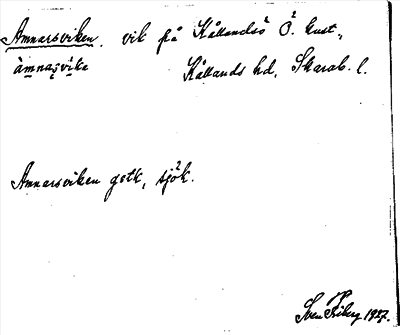 Amnarsviken, vik på Kållandsö Ö. kust,
àmnaṣvìka Kållands hd, Skarab. l.
Amnarsviken gstk, sjök.
Sven Friberg 1927.